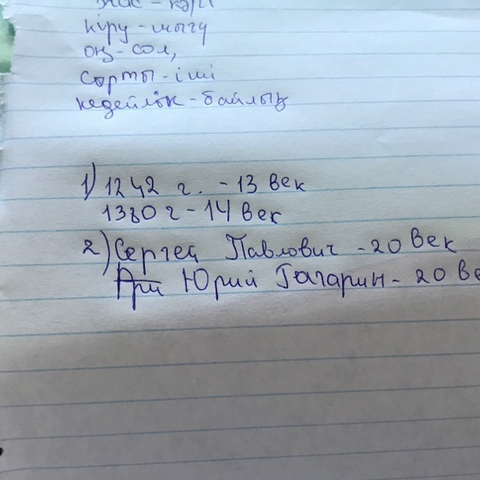 жас - кәрі
кіру - шығу
оң - сол,
сырты - іші
кедейлік - байлық
1) 1242 г. - 13 век
1380 г - 14 век
2) Сергей Павлович - 20 век
Юрий Гагарин - 20 ве